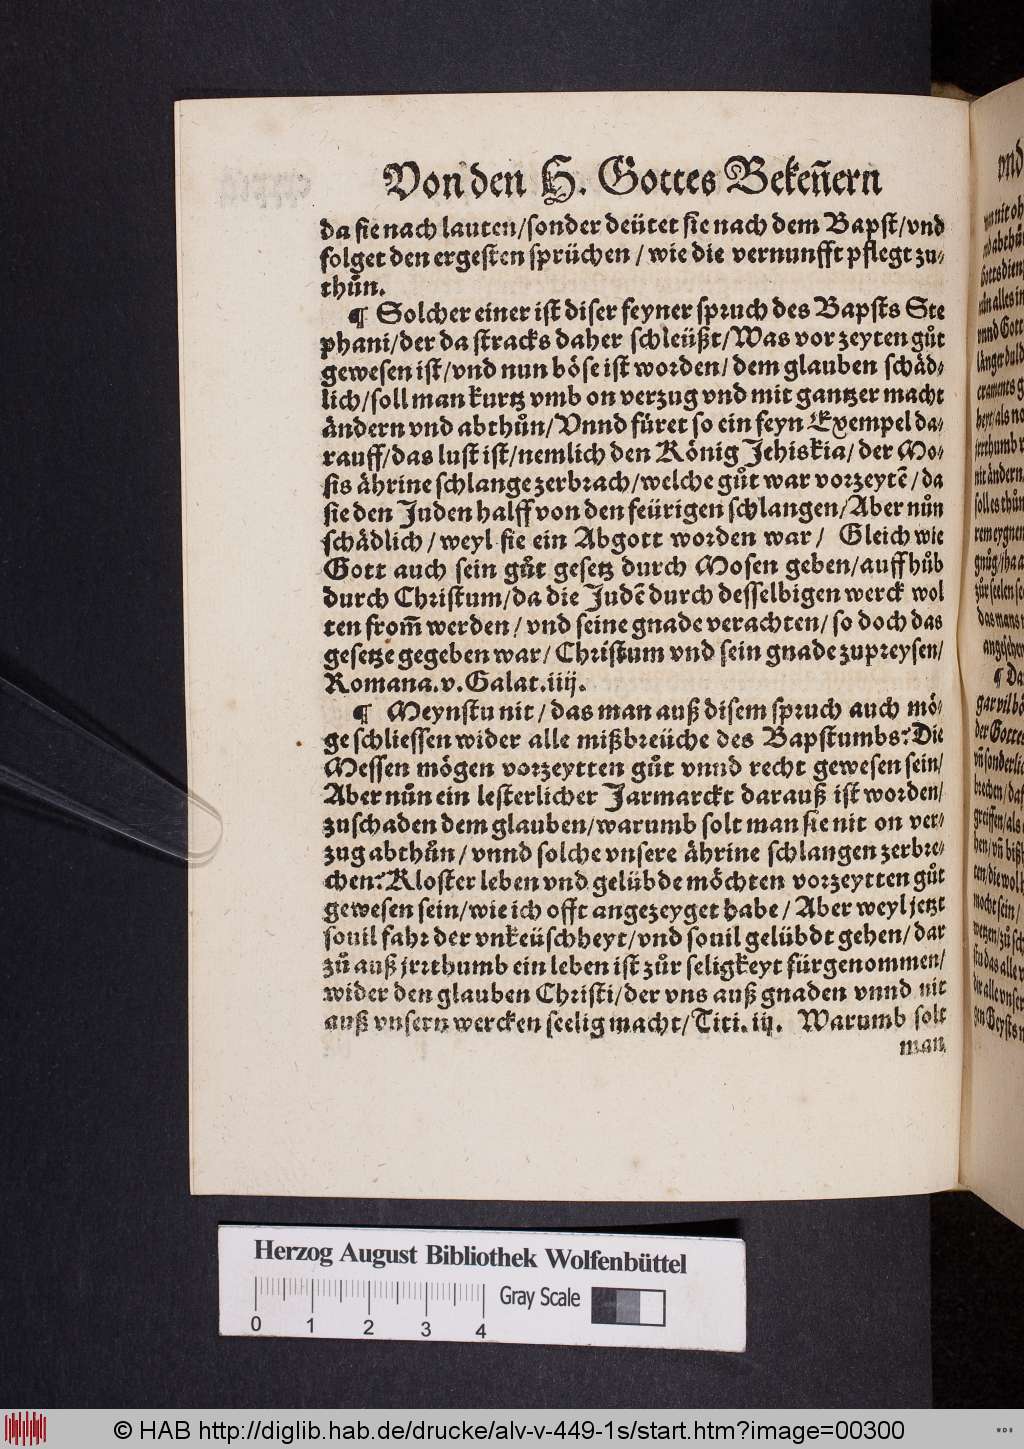 Von den H. Gottes Bekeñern
da sie nach lauten/sonder deütet sie nach dem Bapst/vnd
folget den ergesten sprüchen/wie die vernunfft pflegt zu⸗
thůn.
¶ Solcher einer ist diser feyner spruch des Bapsts Ste
phani/der da stracks daher schleüßt/Was vor zeyten gůt
gewesen ist/vnd nun böse ist worden/dem glauben schäd⸗
lich/soll man kurtz vmb on verzug vnd mit gantzer macht
ändern vnd abthůn/Vnnd füret so ein feyn Exempel da⸗
rauff/das lust ist/nemlich den König Jehiskia/der Mo⸗
sis ährine schlange zerbrach/welche gůt war vorzeytẽ/da
sie den Juden halff von den feürigen schlangen/Aber nůn
schädlich/weyl sie ein Abgott worden war/ Gleich wie
Gott auch sein gůt gesetz durch Mosen geben/auffhůb
durch Christum/da die Judẽ durch desselbigen werck wol
ten from̃ werden/vnd seine gnade verachten/so doch das
gesetze gegeben war/Christum vnd sein gnade zupreysen/
Romana.v.Galat.iiij.
¶ Meynstu nit/das man auß disem spruch auch mö⸗
ge schliessen wider alle mißbreüche des Bapstumbs? Die
Messen mögen vorzeytten gůt vnnd recht gewesen sein/
Aber nůn ein lesterlicher Jarmarckt darauß ist worden/
zuschaden dem glauben/warumb solt man sie nit on ver⸗
zug abthůn/vnnd solche vnsere ährine schlangen zerbre⸗
chen? Kloster leben vnd gelübde möchten vorzeytten gůt
gewesen sein/wie ich offt angezeyget habe/Aber weyl jetzt
souil fahr der vnkeüschheyt/vnd souil gelübdt gehen/dar
zů auß jrrthumb ein leben ist zůr seligkeyt fürgenommen/
wider den glauben Christi/der vns auß gnaden vnnd nit
auß vnsern wercken seelig macht/Titi.iij. Warumb solt
man
Herzog August Bibliothek Wolfenbüttel
Gray Scale
0 1 2 3 4
© HAB http://diglib.hab.de/drucke/alv-v-449-1s/start.htm?image=00300